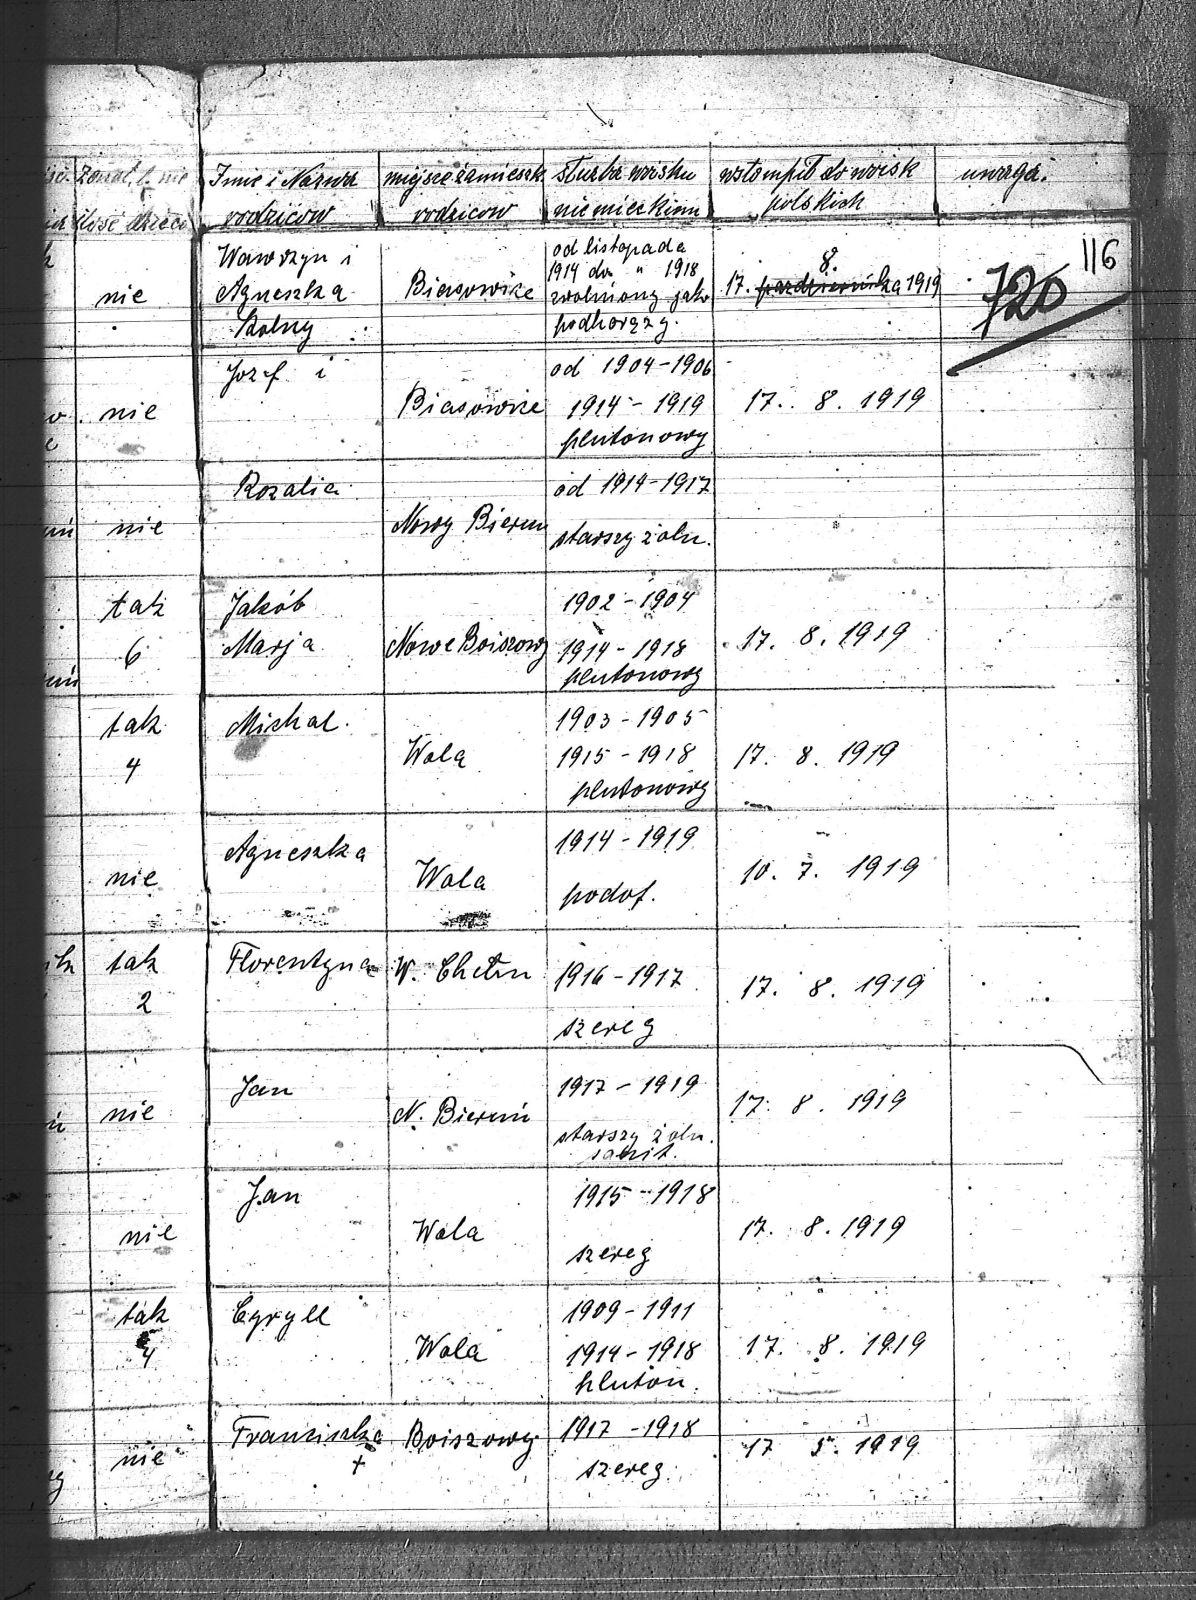 żonat. l. nie
ilość dzieci
Imie i Nazwa
rodziców
miejsce zamieszk
rodziców
służba wojsku
niemieckim
wstompił do wojsk
polskich
uwaga.
116
720
nie
Wawrzyn i
Agneszka
Kolny
Biasowize
od listopada
1914 do " 1918
zwolniony jako
podhorąży.
8.
17. października 1919
nie
Jozef i
Biasowize
od 1904-1906
1914-1919
plutonowy
17. 8. 1919
nie
Rozalia
Nowy Bierun
od 1914-1917
starszy żoln.
tak
6
Jakób
Marja
Nowe Boiszowy
1902-1904
1914-1918
plutonowy
17. 8. 1919
tak
4
Michal.
Wola
1903-1905
1915-1918
plutonowy
17. 8. 1919
nie
Agneszka
Wola
1914-1919
podof.
10. 7. 1919
tak
2
Florentyna
W. Chełm
1916-1917
szereg
17. 8. 1919
nie
Jan
N. Bieruń
1917-1919
starszy żoln.
sanit.
17. 8. 1919
nie
Jan
Wola
1915-1918
szereg
17. 8. 1919
tak
4
Cyryll
Wola
1909-1911
1914-1918
pluton.
17. 8. 1919
nie
Franziszka
+
Boiszowy
1917-1918
szereg.
17 5. 1919